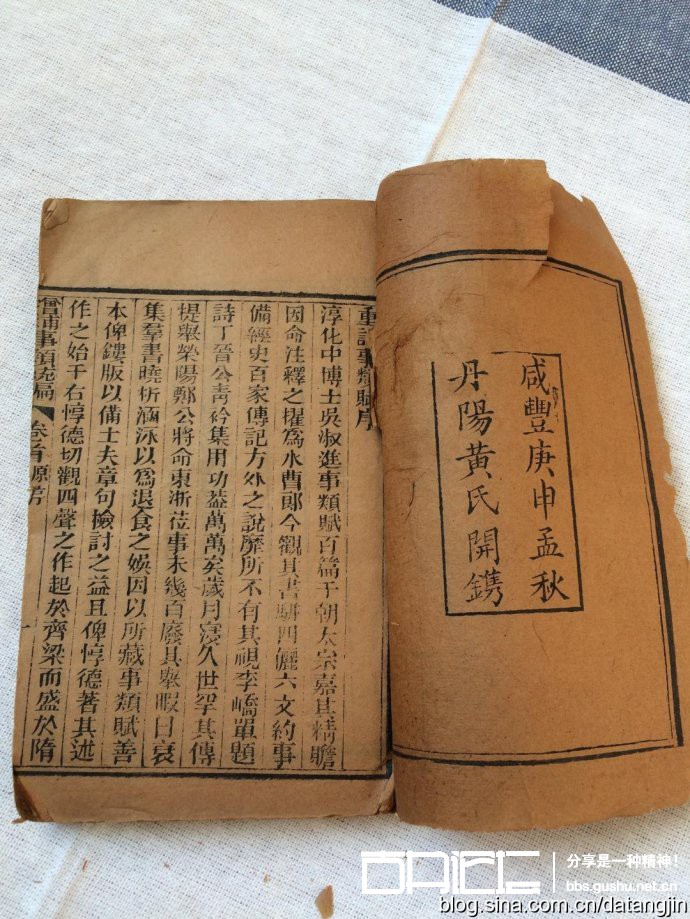 咸豐庚申孟秋
丹陽黃氏開鐫
重訂事類賦序
淳化中博士吳淑進事類賦百篇于朝太宗嘉其精贍
因命注釋之擢為水曹郎今觀其書駢四儷六文約事
備經史百家傳記方外之說靡所不有其視李嶠單題
詩丁晉公青衿集用功益萬萬矣歲月寖久世罕其傳
提舉滎陽鄭公將命東浙莅事未幾百廢具舉暇日裒
集羣書曉析涵泳以為退食之娛因以所藏事類賦善
本俾鏤版以備士夫章句檢討之益且俾惇德著其述
作之始于右惇德切觀四聲之作起於齊梁而盛於隋
增補事類統編
卷首 原序
分享是一种精神!
bbs.gushu.net.cn
blog.sina.com.cn/datangjin